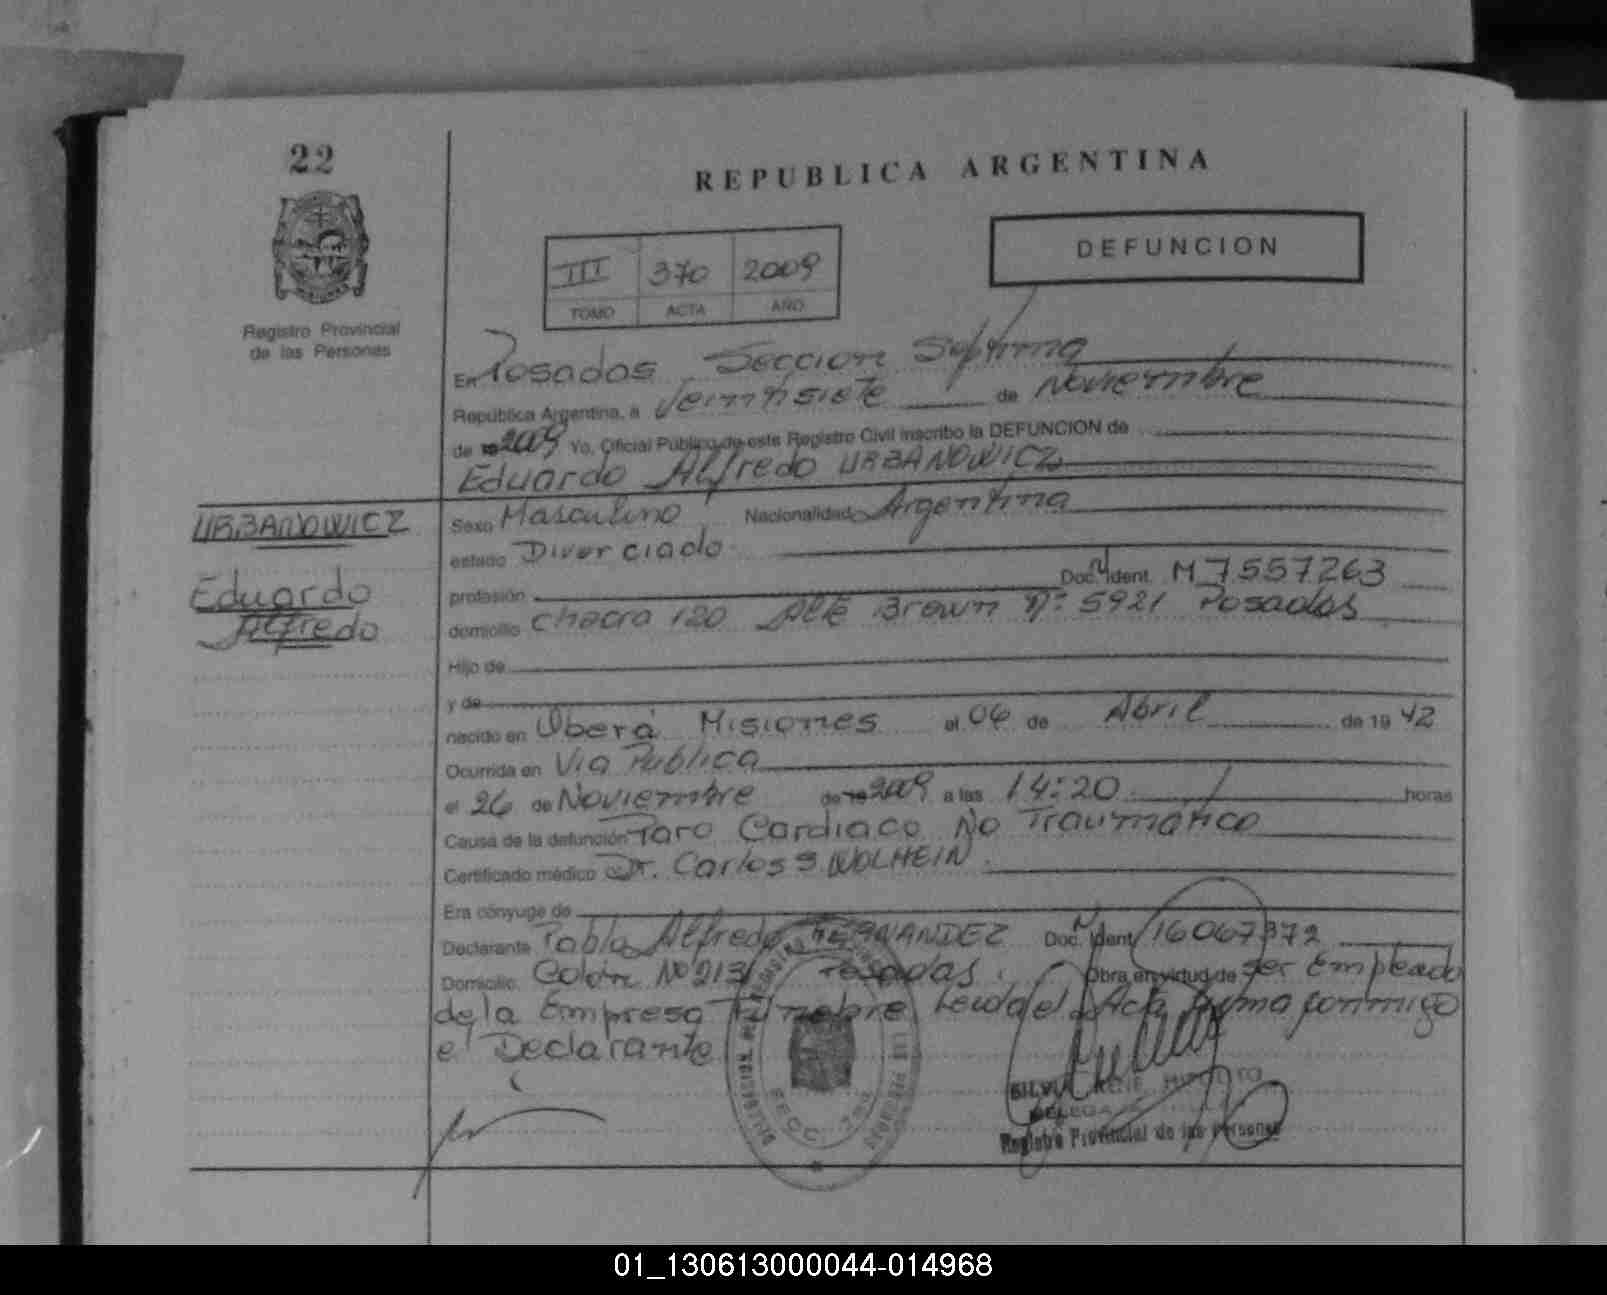 22
REPUBLICA ARGENTINA
Registro Provincial
de las Personas
III 370 2009
TOMO ACTA AÑO
DEFUNCION
En Posadas Seccion Septima
República Argentina, a Veintisiete de Noviembre
de 2009 Yo, Oficial Público de este Registro Civil inscribo la DEFUNCION de
Eduardo Alfredo URBANOWICZ
URBANOWICZ
Eduardo
Alfredo
Sexo Masculino Nacionalidad Argentina
estado Divorciado
profesión Doc. Ident. M 7557263
domicilio Chacra 120 Alte Brown Nº 5921 Posadas
Hijo de
y de
nacido en Oberá Misiones el 06 de Abril de 1942
Ocurrida en Via Publica
el 26 de Noviembre de 2009 a las 14:20 horas
Causa de la defunción Paro Cardiaco No Traumatico
Certificado médico Dr. Carlos S. WOLHEIN
Era cónyuge de
Declarante Pablo Alfredo FERNANDEZ Doc. Ident. 16067372
Domicilio Colón Nº 213 Posadas. Obra en virtud de Ser Empleado
de la Empresa Funebre Leida el Acta firma conmigo
el Declarante
SECC. 7
SILVI RENE HIPOLITO
DELEGA
Registro Provincial de las Personas
01_130613000044-014968